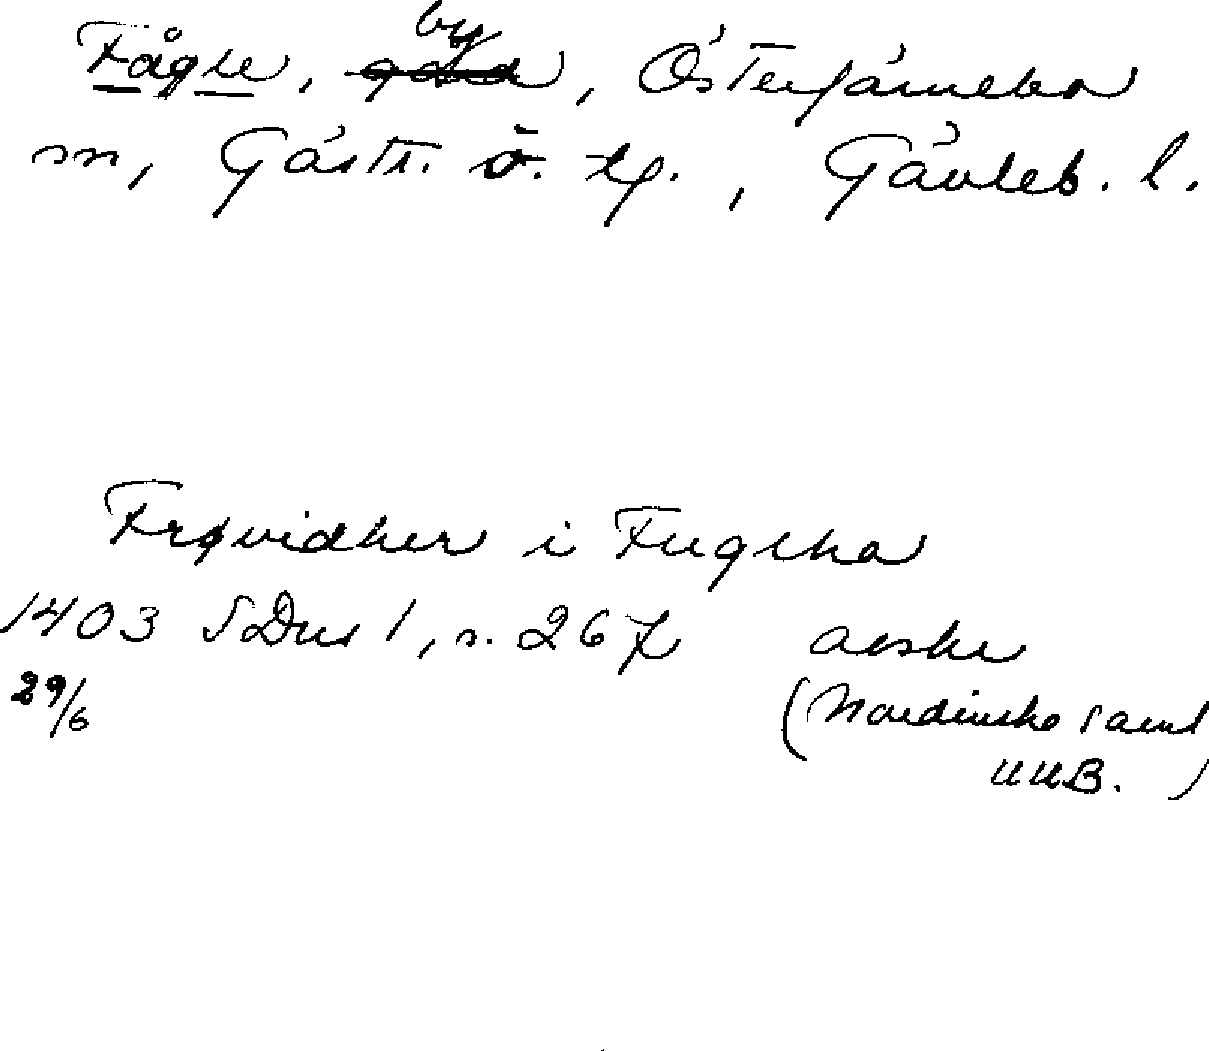 Fågle, by gård, Österfärnebo
sn, Gästr. ö. tg., Gävleb. l.
Frqvidher i Fuglha
1403 SDns 1, s. 267 avskr
29/6 (Nordinska saml
UUB.)